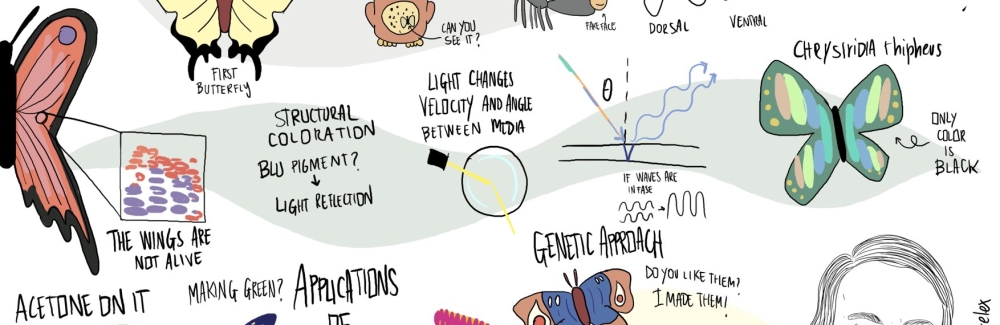 CAN YOU
SEE IT?
FAKE FACE
DORSAL
VENTRAL
FIRST
BUTTERFLY
STRUCTURAL
COLORATION
BLU PIGMENT?
LIGHT REFLECTION
LIGHT CHANGES
VELOCITY AND ANGLE
BETWEEN MEDIA
θ
IF WAVES ARE
IN FASE
CHRYSIRIDIA rhipheus
ONLY
COLOR
IS
BLACK
THE WINGS ARE
NOT ALIVE
ACETONE ON IT
MAKING GREEN?
APPLICATIONS
OF
GENETIC APPROACH
DO YOU LIKE THEM?
I MADE THEM!